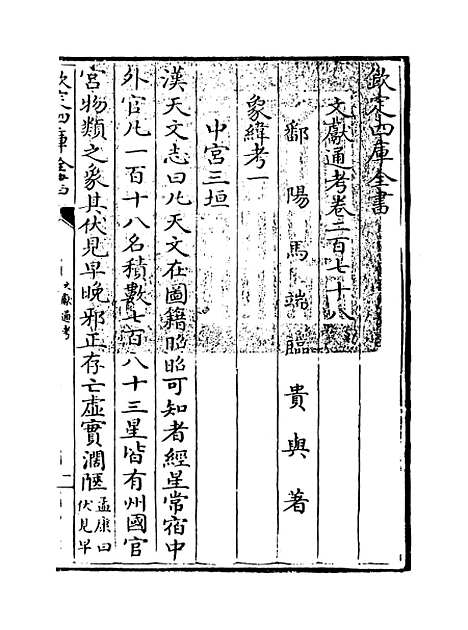 欽定四庫全書
文獻通考卷二百七十八
鄱陽馬端臨貴與著
象緯考一
中宮三垣
漢天文志曰凡天文在圖籍昭昭可知者經星常宿中
外官凡一百十八名積數七百八十三星皆有州國官
宮物類之象其伏見早晚邪正存亡虛實濶陿
孟康曰
伏見早
欽定四庫全書
文獻通考
一